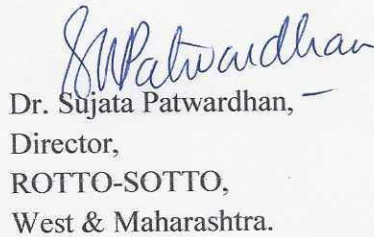 SWPatwardhan
Dr. Sujata Patwardhan,
Director,
ROTTO-SOTTO,
West & Maharashtra.